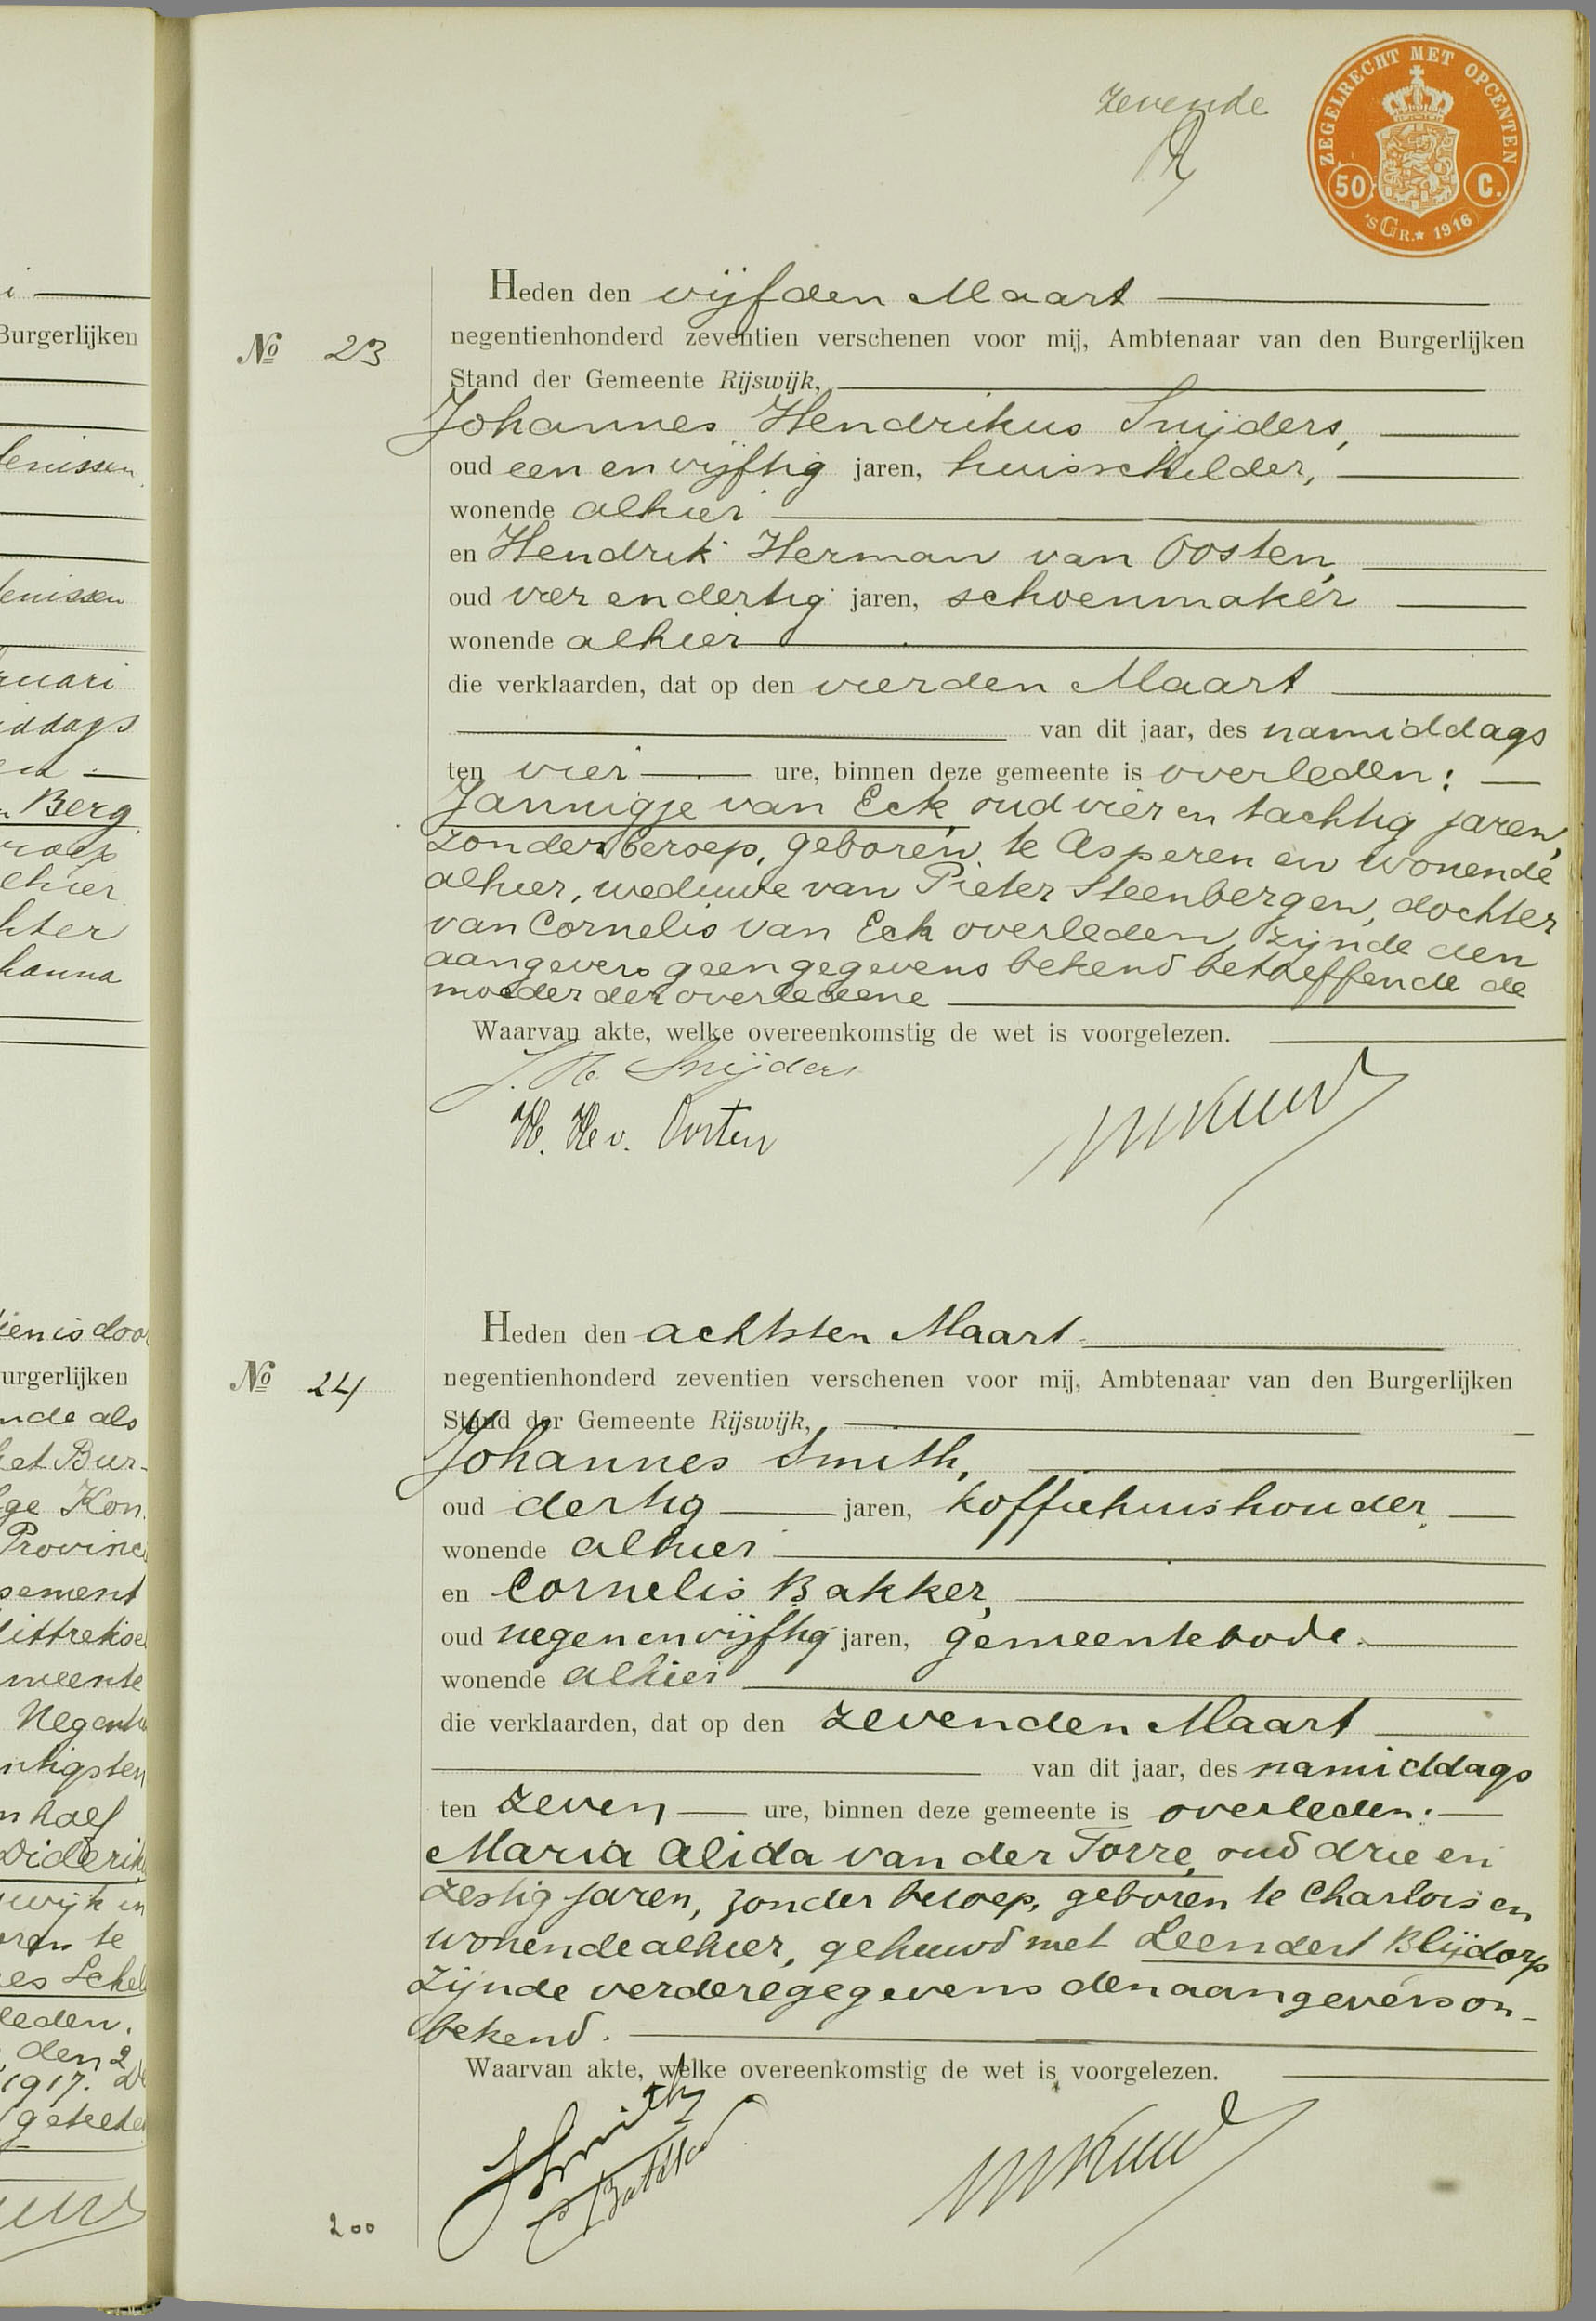 zevende
ZEGELRECHT MET OPCENTEN
50 C.
'S GR. * 1916
Heden den vijfden Maart
No 23
negentienhonderd zeventien verschenen voor mij, Ambtenaar van den Burgerlijken
Stand der Gemeente Rijswijk,
Johannes Hendrikus Snijders,
oud een en vijftig jaren, huisschilder,
wonende alhier
en Hendrik Herman van Oosten,
oud vier en dertig jaren, schoenmaker
wonende alhier
die verklaarden, dat op den vierden Maart
van dit jaar, des namiddags
ten vier ure, binnen deze gemeente is overleden:
Jannigje van Eck, oud vier en tachtig jaren,
zonder beroep, geboren te Asperen en wonende
alhier, weduwe van Pieter Steenbergen, dochter
van Cornelis van Eck overleden, zijnde den
aangevers geen gegevens bekend betreffende de
moeder der overledene
Waarvan akte, welke overeenkomstig de wet is voorgelezen.
J. H. Snijders
H. H. v. Oosten
Heden den achtsten Maart
No 24
negentienhonderd zeventien verschenen voor mij, Ambtenaar van den Burgerlijken
Stand der Gemeente Rijswijk,
Johannes Smith,
oud dertig jaren, koffiehuishouder,
wonende alhier
en Cornelis Bakker,
oud negen en vijftig jaren, gemeentebode.
wonende alhier
die verklaarden, dat op den zevenden Maart
van dit jaar, des namiddags
ten zeven ure, binnen deze gemeente is overleden:
Maria Alida van der Torre, oud drie en
zestig jaren, zonder beroep, geboren te Charlois en
wonende alhier, gehuwd met Leendert Blijdorp
zijnde verdere gegevens den aangevers on-
bekend.
Waarvan akte, welke overeenkomstig de wet is voorgelezen.
J Smith
C Bakker
200